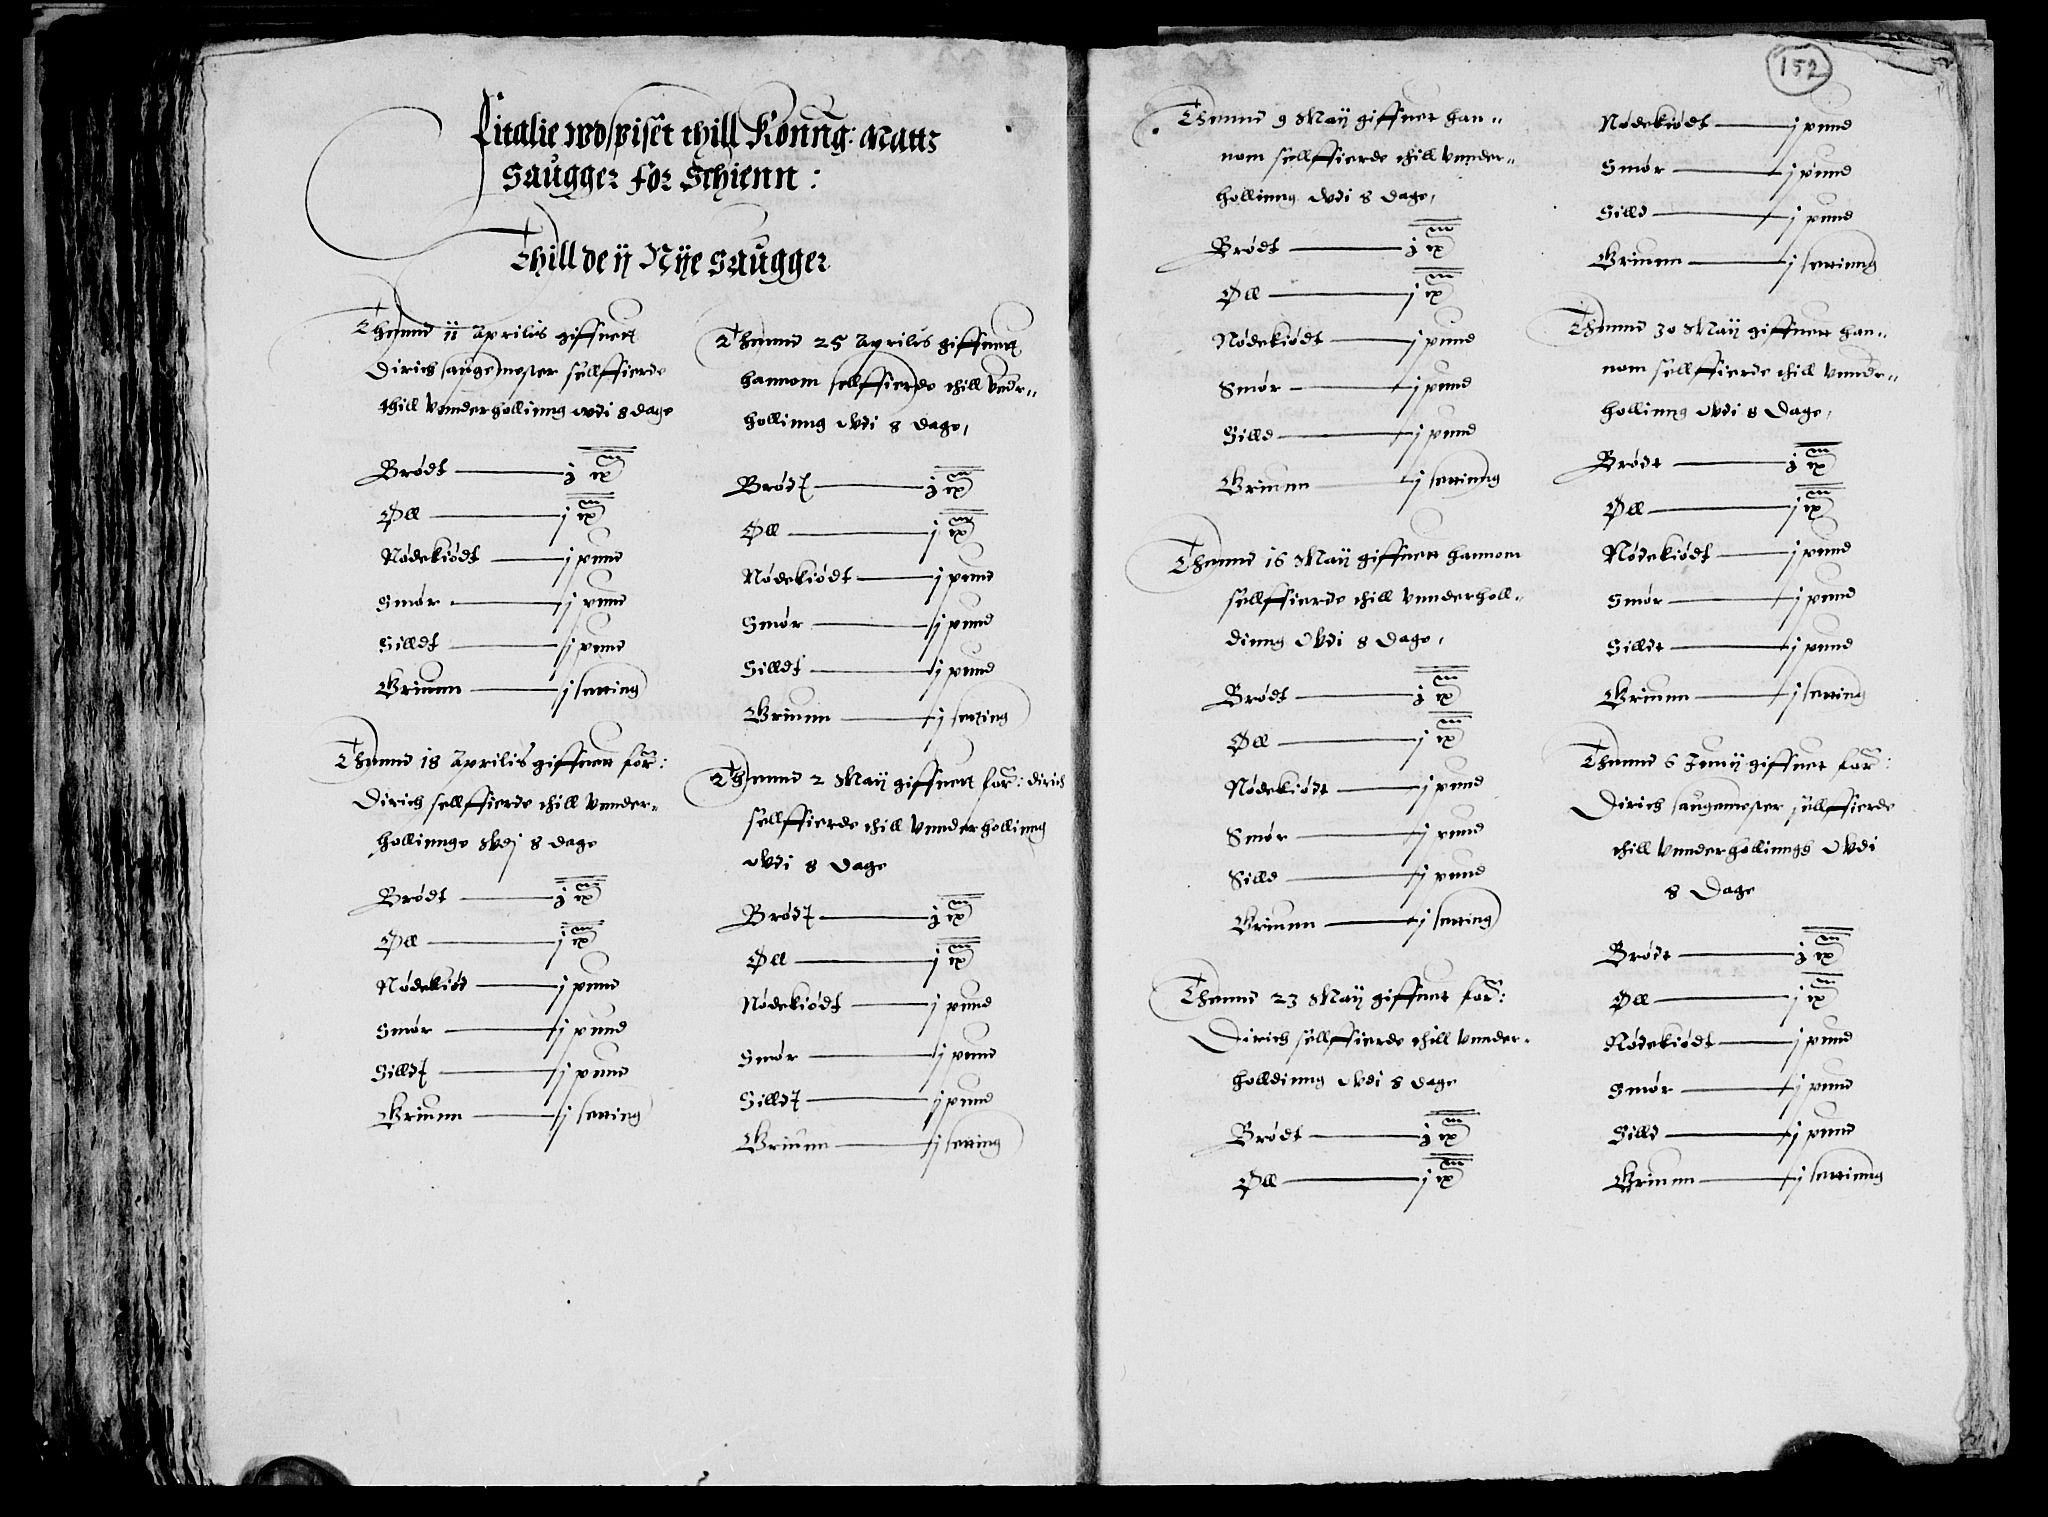 Fitalie wdspiset thill Konng: Matts
Saugger for Schienn:
Thill de ij Nije Saugger
Thennd 11 Aprilis giffuett
Dirich saugemester sellffierde
thill Vnnderhollinng vdi 8 dage
Brødt — j
Øll — j
Nødekiødt — j pund
Smør — j pund
Silldt — j pund
Griunn — j setting
Thennd 18 Aprilis giffuett for:
Dirich sellffierde thill Vnnder-
hollinnge vdj 8 dage
Brødt — j
Øll — j
Nødekiød — j pund
Smør — j pund
Silldt — j pund
Griunn — j setting
Thennd 25 Aprilis giffuett
hannom sellffierde thill Vndr-
hollinng vdi 8 dage,
Brødt — j
Øll — j
Nødekiødt — j pund
Smør — j pund
Silldt — j pund
Griunn — j setting
Thennd 2 Maij giffuett for: dirich
sellffierde thill Vnnderhollinng
vdi 8 dage
Brødt — j
Øll — j
Nødekiødt — j pund
Smør — j pund
Silldt — j pund
Griunn — j setting
152
Thennd 9 Maij giffuet han-
nom sellffierde thill Vnnder-
hollinng vdi 8 dage,
Brødt — j
Øll — j
Nødekiødt — j pund
Smør — j pund
Silld — j pund
Griunn — j settinng
Thennd 16 Maij giffuett hannom
sellffierde thill Vnnderholl-
dinng vdi 8 dage,
Brødt — j
Øll — j
Nødekiødt — j pund
Smør — j pund
Silld — j pund
Griunn — j setting
Thennd 23 Maij giffuet for:
Dirich sellffierde thill Vnnder-
holldinng vdi 8 dage
Brødt — j
Øll — j
Nødekiødt — j pund
Smør — j pund
Silld — j pund
Griunn — j settinng
Thennd 30 Maij giffuett han-
nom sellffierde thill Vnndr-
hollinng vdi 8 Dage,
Brødt — j
Øll — j
Nødekiødt — j pund
Smør — j pund
Silldt — j pund
Griunn — j setting
Thennd 6 Junij giffuet for:
Dirich saugemester sellffierde
thill Vnnderhollinngs vdi
8 Dage
Brødt — j
Øll — j
Nødekiødt — j pund
Smør — j pund
Silld — j pund
Griunn — j settinng